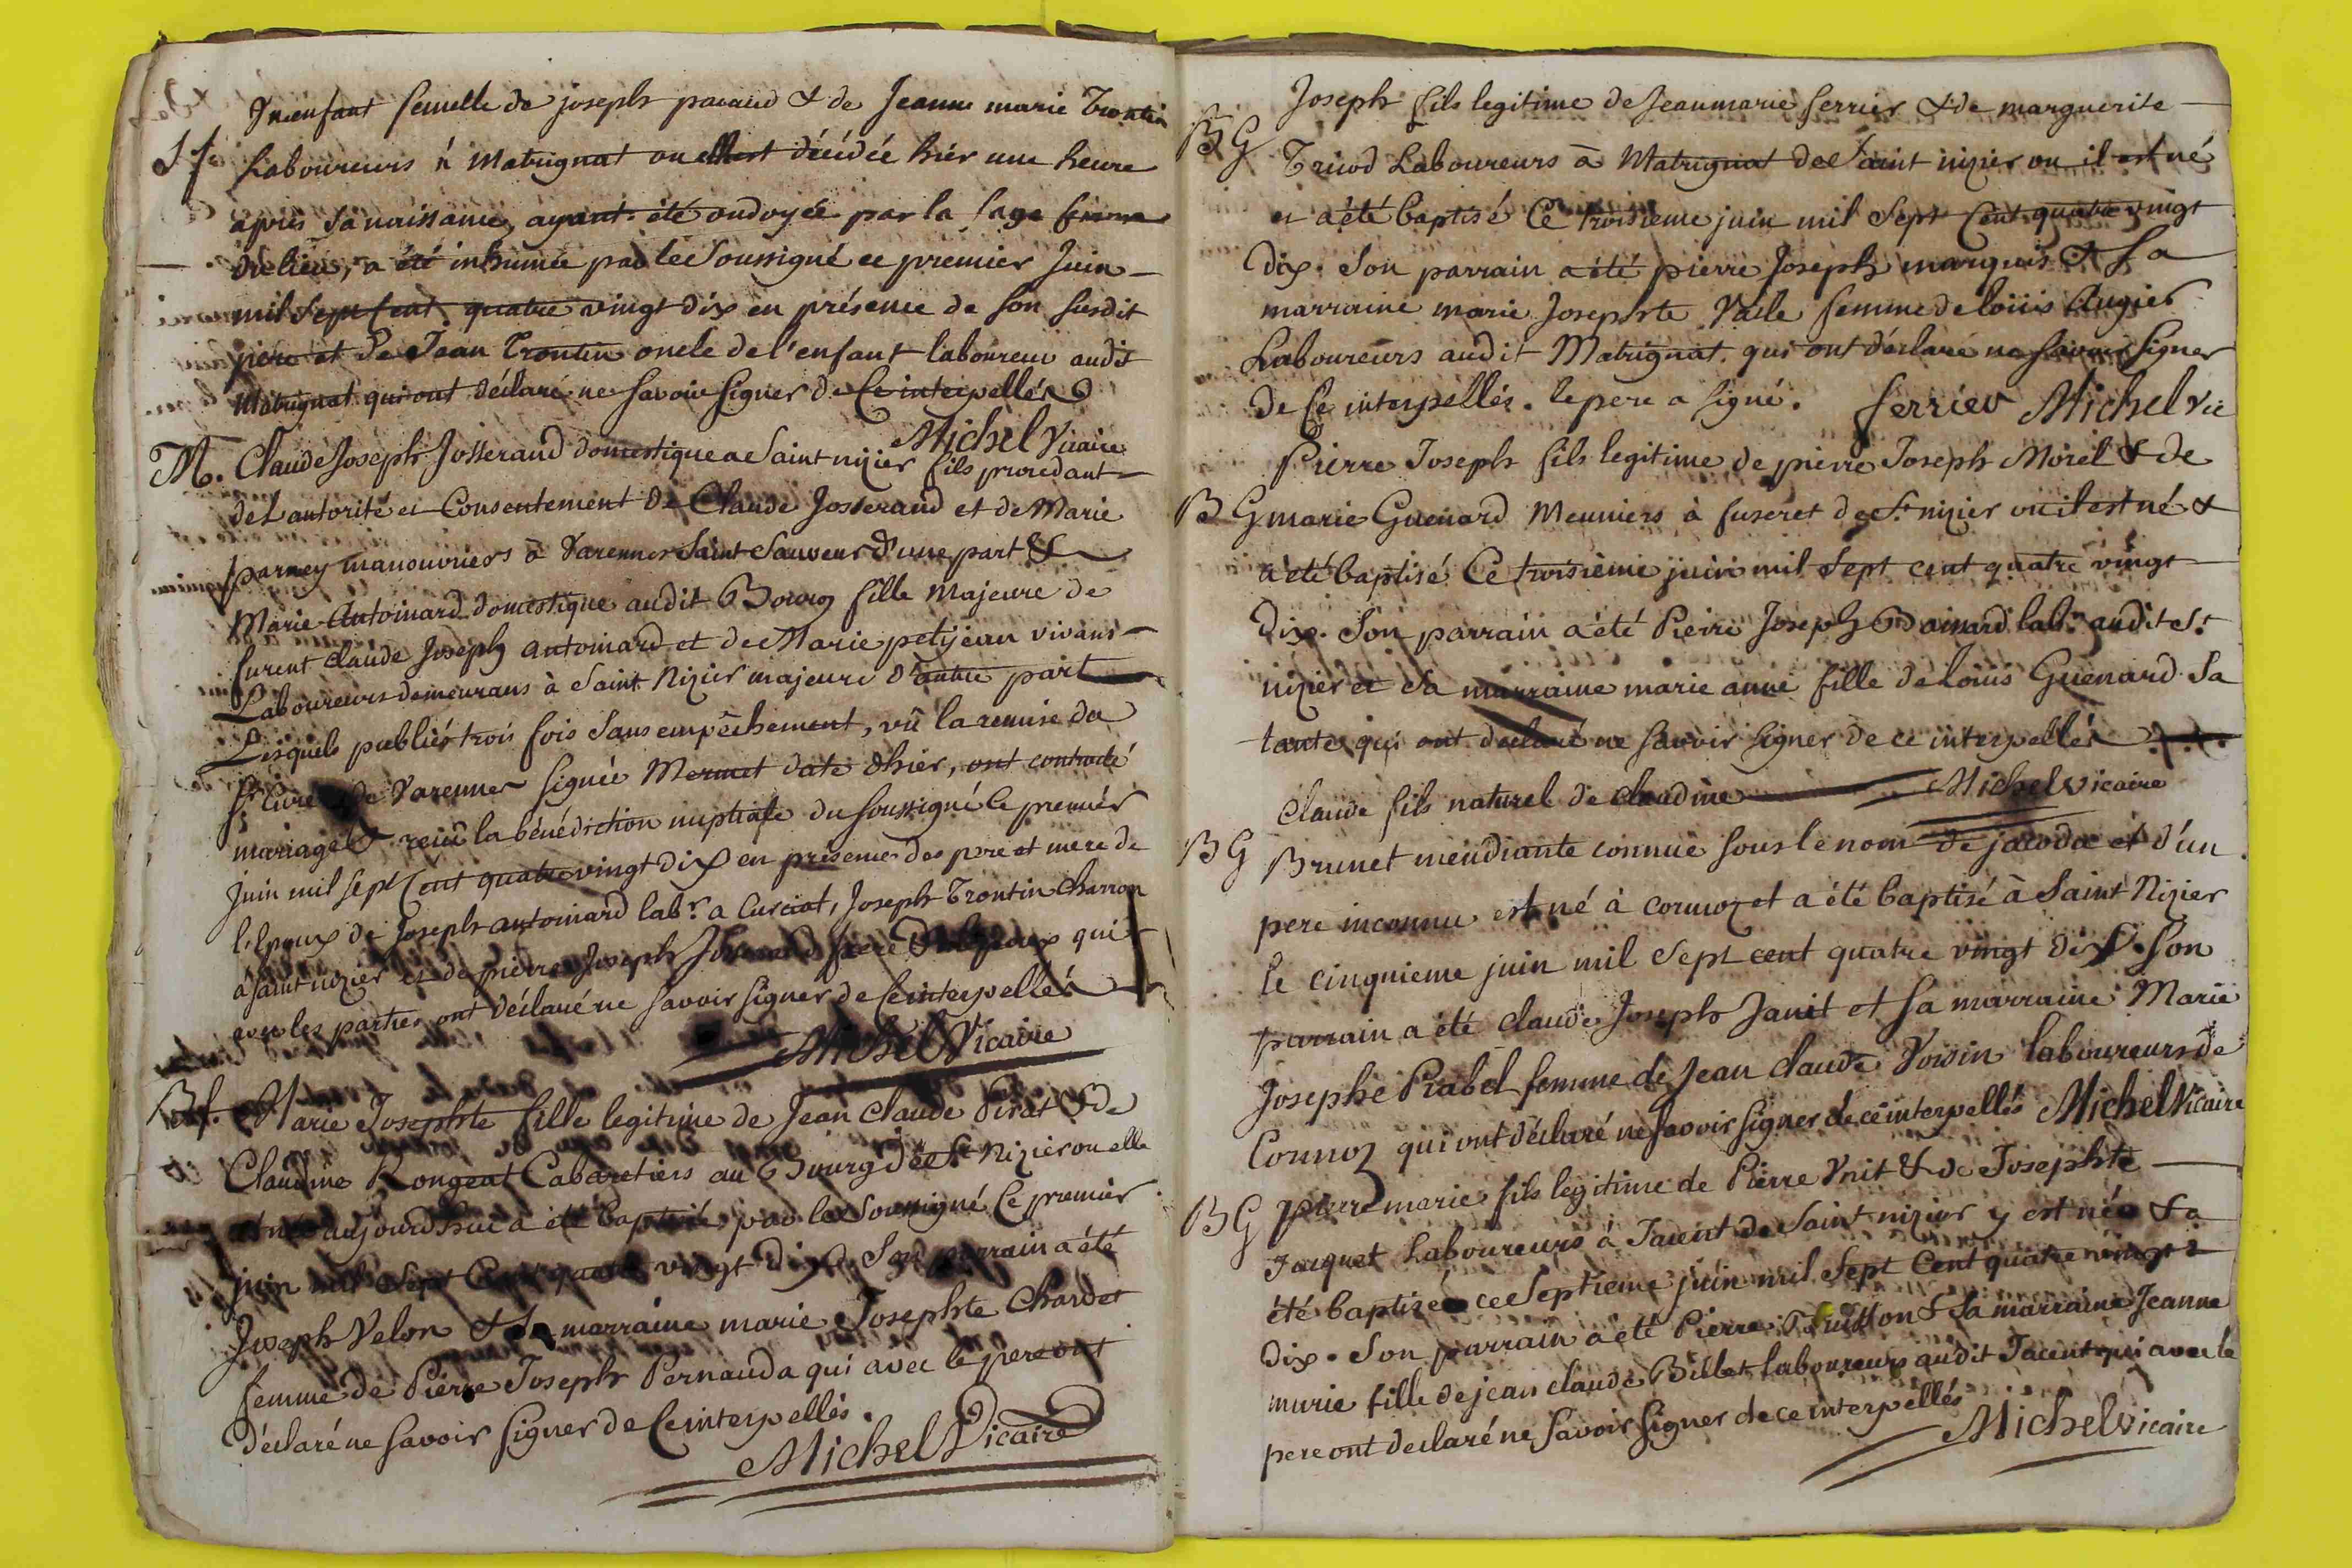 Un enfant femelle de joseph pacaud & de Jeanne marie Trontin
Sf. Laboureurs à Matrignat ou elle est décédée hier une heure
après sa naissance, ayant été ondoyée par la sage femme
du lieu, a été inhumée par le soussigné ce premier Juin
mil sept cent quatre vingt dix en présence de son susdit
père et de Jean Trontin oncle de l'enfant laboureur audit
Matrignat qui ont déclaré ne savoir signer de ce interpellés
Michel Vicaire
M. Claude Joseph Josserand domestique a Saint nizier fils procedant
de l'autorité et Consentement de Claude Josserand et de Marie
parney manouvriers à Varennes Saint Sauveur d'une part &
Marie Antoinard domestique audit Bourg fille Majeure de
furent claude Joseph antoinard et de Marie petijean vivans
Laboureurs demeurans à Saint Nizier majeure d'autre part
Lesquels publiés trois fois sans empêchement, vû la remise de
Sr Curé de Varennes signée Mermet date dhier, ont contracté
mariage & reçu la bénédiction nuptiale du soussigné le premier
juin mil sept Cent quatre vingt dix en presence des pere et mere de
l'epoux de Joseph antoinard labr. a Curciat, Joseph Trontin charron
a saint nizier et de pierre Joseph Josserand frere de l'epoux qui
avec les parties ont déclaré ne savoir signer de ce interpellés
Michel Vicaire
Bf. Marie Josephte fille legitime de Jean claude Pirat & de
Claudine Rongeat Cabaretiers au Bourg de St Nizier ou elle
est née aujourdhui a été baptisée par le soussigné Ce premier
juin mil sept Cent quatre vingt dix. Son parrain a été
Joseph Velon & sa marraine marie Josephte Chardet
femme de Pierre Joseph Pernauda qui avec le pere ont
déclaré ne savoir signer de Ce interpellés.
Michel Vicaire
Joseph fils legitime de Jeanmarie ferrier & de marguerite
BG Tricod Laboureurs à Matrignat de Saint nizier ou il est né
et a été baptisé Ce troisieme juin mil Sept Cent quatre vingt
dix. Son parrain a été pierre Joseph marquis & sa
marraine marie Josephte Valle femme de loüis Augier
Laboureurs audit Matrignat. qui ont déclaré ne savoir signer
de Ce interpellés. le pere a signé. ferrier Michel Vic
Pierre Joseph fils legitime de pierre Joseph Morel & de
BG marie Guenard Meuniers à fuseret de St nizier ou il est né &
a été baptisé Ce troisième juin mil sept cent quatre vingt
dix. Son parrain a été Pierre Joseph Donard labr. audit St
nizier et sa marraine marie anne fille de Louis Guenard sa
tante, qui ont declaré ne savoir signer de ce interpellés
Michel vicaire
Claude fils naturel de claudine
BG Brunet mendiante connue sous le nom de jacoda et d'un
pere inconnu est né à cormoz et a été baptisé à Saint Nizier
le cinquieme juin mil sept cent quatre vingt dix. Son
parrain a été claude Joseph Janit et sa marraine Marie
Josephe Prabel femme de Jean claude Voisin laboureurs de
Cormoz qui ont déclaré ne savoir signer de ce interpellés Michel Vicaire
BG pierre marie fils legitime de Pierre Vnit & de Josephte
Jacquet Laboureurs à Tacent de Saint nizier y est né & a
été baptisé ce Septieme juin mil Sept Cent quatre vingt
dix. Son parrain a été Pierre Buisson & sa marraine Jeanne
marie fille de jean claude Billet laboureurs audit Tacent qui avec le
pere ont declaré ne savoir signer de ce interpellés
Michel vicaire